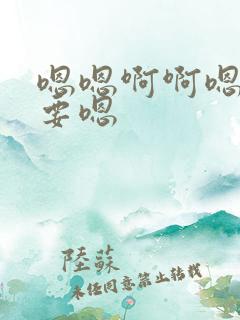 嗯嗯啊啊嗯
要嗯
陸蘇
未經同意禁止转载